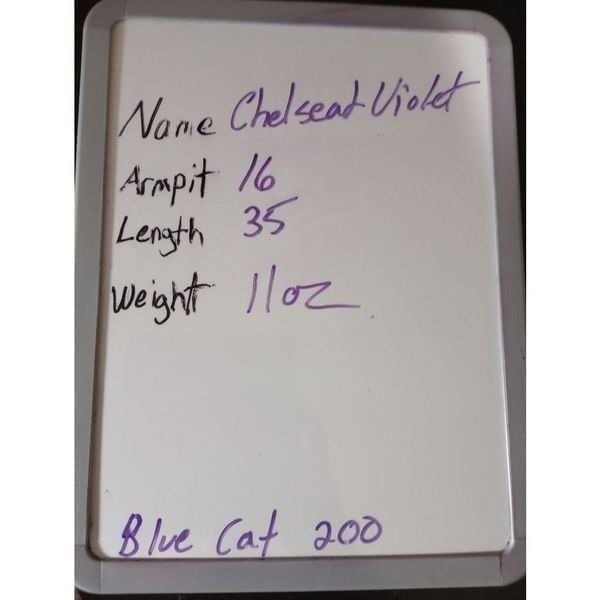 Name Chelsea & Violet
Armpit 16
Length 35
Weight 11oz
Blue Cat 200